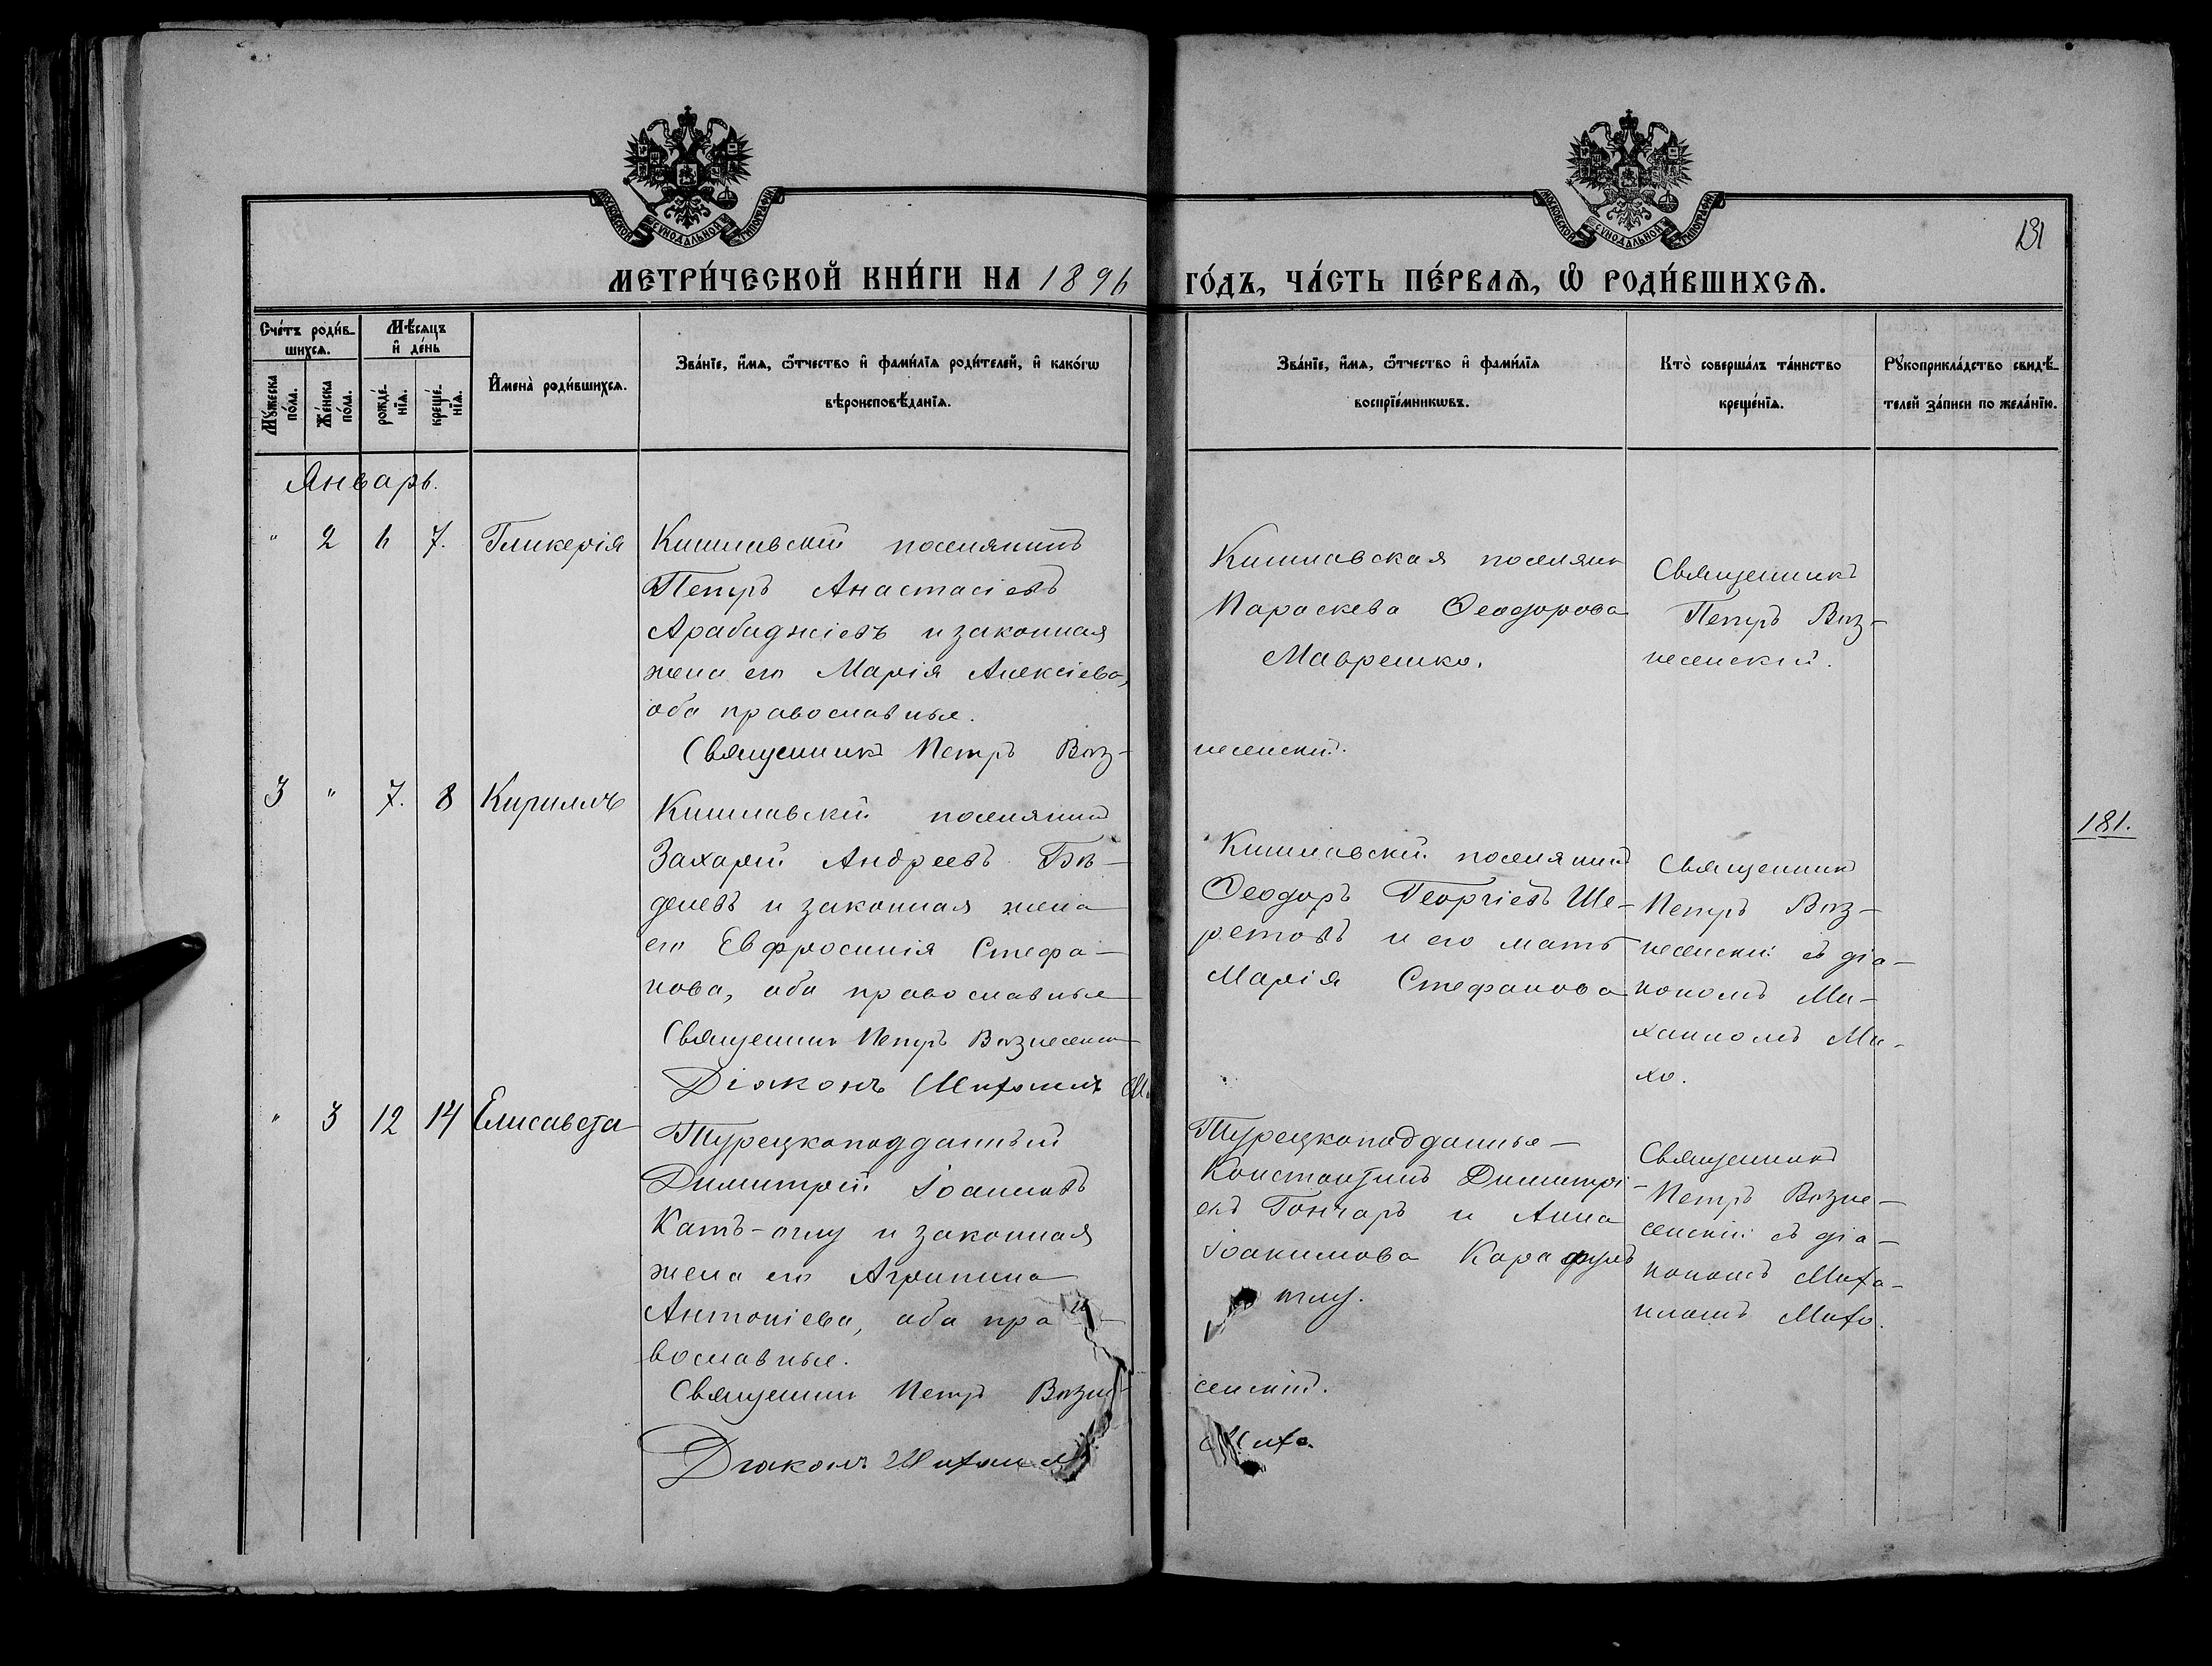 МОСКОВСКОЙ СѴНОДАЛЬНОЙ ТИПОГРАФІИ
МОСКОВСКОЙ СѴНОДАЛЬНОЙ ТИПОГРАФІИ
131
МЕТРИ́ЧЕСКОЙ КНИ́ГИ НА 1896 ГО́ДЪ, ЧА́СТЬ ПЕ́РВАѦ, Ѽ РОДИ́ВШИХСѦ.
Сче́тъ роди́в-
шихсѧ.
Мꙋ́жеска по́ла.
Же́нска по́ла.
Мѣ́сѧцъ
и҆ де́нь
рожде́-нїѧ.
креще́-нїѧ.
И҆мена̀ роди́вшихсѧ.
Зва́нїе, и҆́мѧ, ѻ҆́тчество и҆ фами́лїѧ роди́телей, и҆ како́гѡ
вѣроисповѣ́данїѧ.
Зва́нїе, и҆́мѧ, ѻ҆́тчество и҆ фами́лїѧ
воспрїе́мникѡвъ.
Кто̀ соверша́лъ та́инство
креще́нїѧ.
Рꙋкоприкла́дство свидѣ́-
телей за́писи по жела́нїю.
Январь.
" 2 6 7. Гликерія
Кишлавскій поселянинъ
Петръ Анастасіевъ
Арабаджіевъ и законная
жена его Марія Алексіева,
оба православные.
Священникъ Петръ Воз-
несенскій.
Кишлавская поселянк
Параскева Ѳеодорова
Маврешко.
Священникъ
Петръ Воз-
несенскій.
3 " 7. 8 Кириллъ
Кишлавскій поселянинъ
Захарій Андреевъ Бѣ-
делевъ и законная жена
его Евфросинія Стефа-
нова, оба православные
Священникъ Петръ Вознесенск
Діаконъ Михаилъ
Кишлавскій поселянинъ
Ѳеодоръ Георгіевъ Ше-
ретовъ и его мать
Марія Стефанова
Священникъ
Петръ Воз-
несенскій съ діа-
кономъ Ми-
хаиломъ Ми-
хо.
181.
" 3 12 14 Елисавета
Турецкоподданный
Димитрій Іоанновъ
Катъ-оглу и законная
жена его Агрипина
Антоніева, оба пра-
вославные.
Священникъ Петръ Возне-
сенскій.
Діаконъ Михаилъ
Михо.
Турецкоподданные-
Константинъ Димитрі-
евъ Гончаръ и Анна
Іоакимова Карафулъ
оглу.
Священникъ
Петръ Возне-
сенскій съ діа-
кономъ Миха-
иломъ Михо.